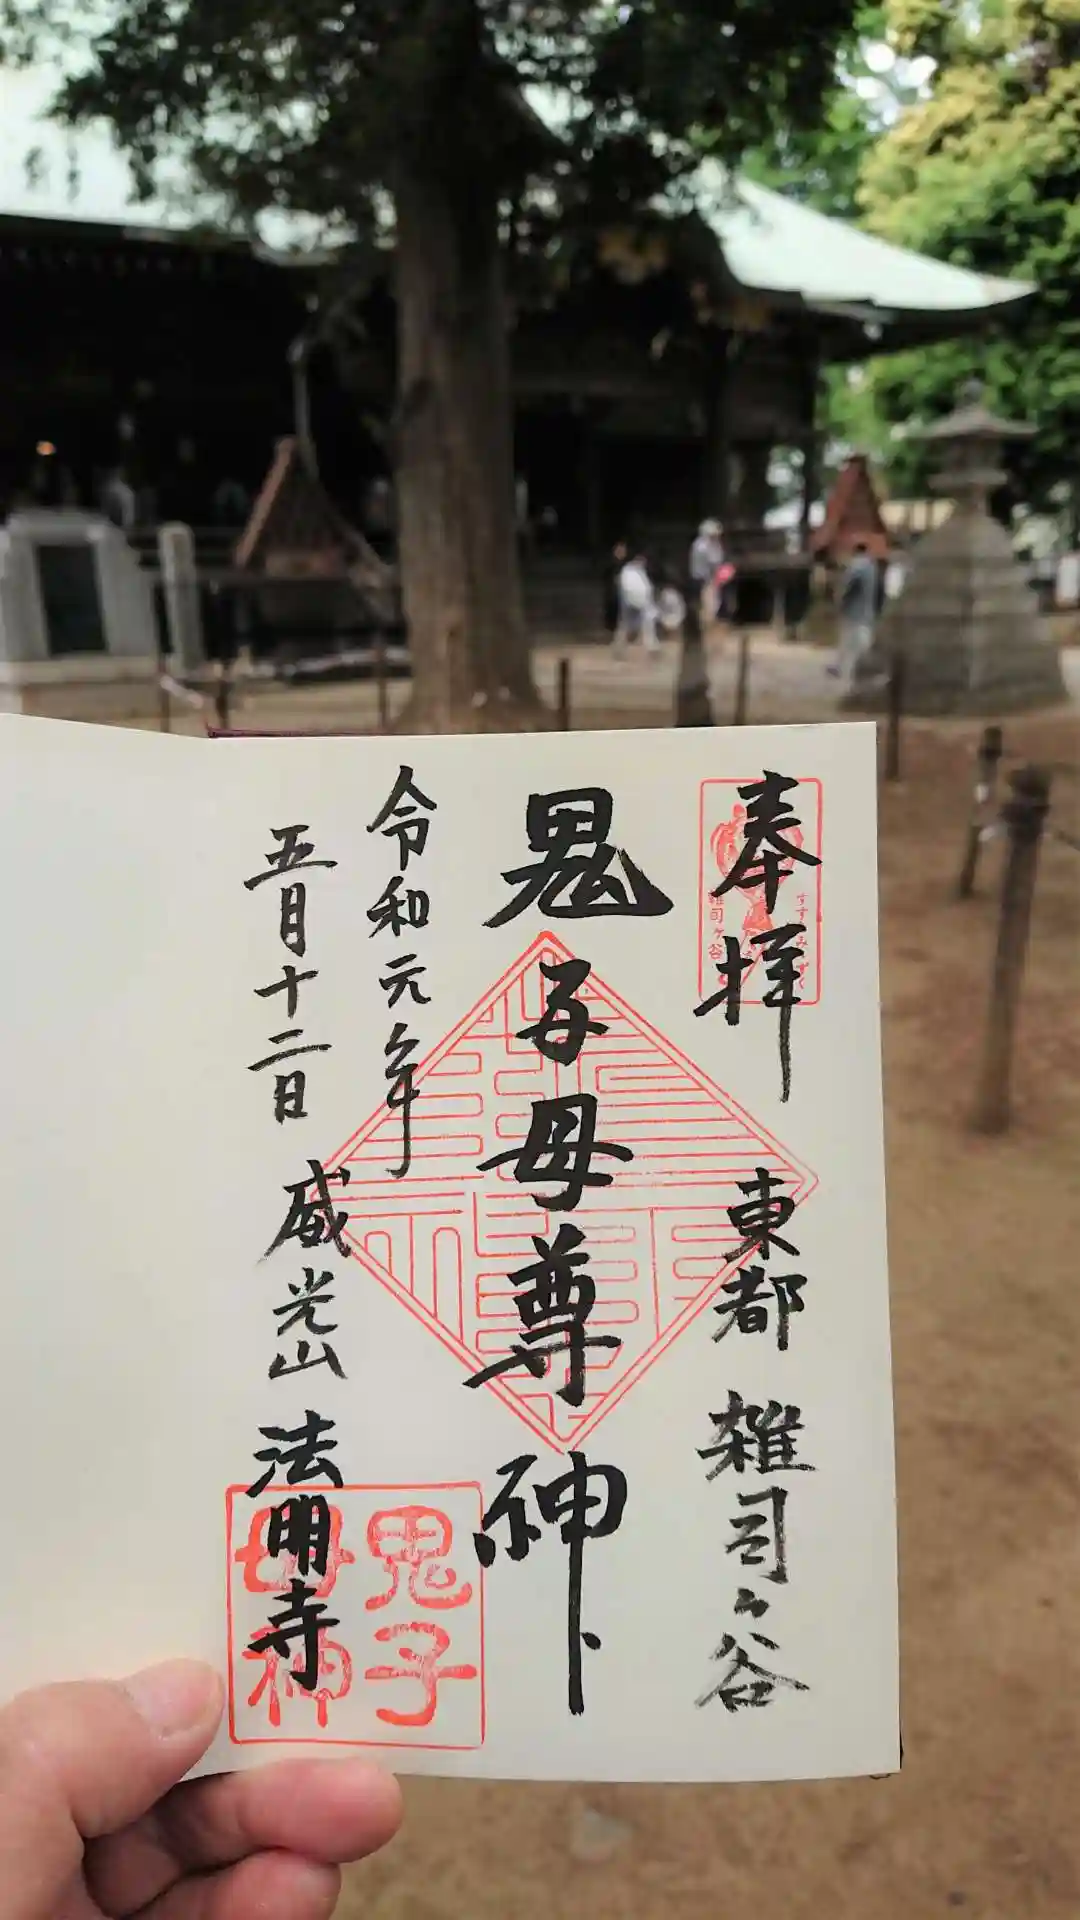 奉拝
東都 雑司ヶ谷
すすきみみずく
雑司ヶ谷
鬼子母尊神
令和元年
五月十二日
威光山 法明寺
鬼子
母神